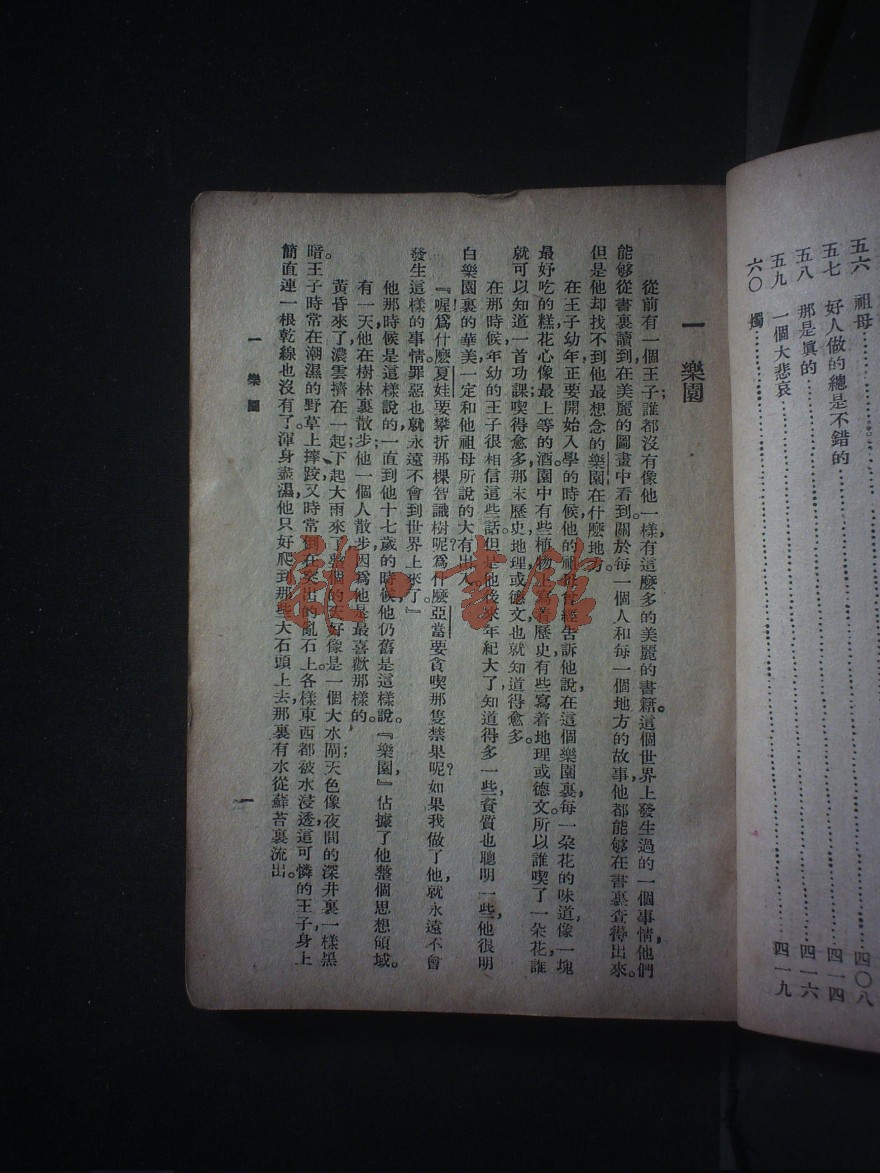 五六 祖母……四〇八
五七 好人做的總是不錯的……四一四
五八 那是眞的……四一六
五九 一個大悲哀……四一九
六〇 燭……
一 樂園
從前有一個王子；誰都沒有像他一樣，有這麼多的美麗的書籍。這個世界上發生過的一個事情，他們
能够從書裏讀到，在美麗的圖畫中看到。關於每一個人和每一個地方的故事，他都能够在書裏查得出來。
但是他却找不到他最想念的樂園在什麼地方。
在王子幼年，正要開始入學的時候，他的祖母曾經告訴他說，在這個樂園裏，每一朶花的味道，像一塊
最好吃的糕；花心像最上等的酒。園中有些植物上寫着歷史，有些寫着地理或德文。所以誰喫了一朶花，誰
就可以知道一首功課；喫得愈多，那末歷史地理或德文也就知道得愈多。
在那時候，年幼的王子很相信這些話。但是他後來年紀大了，知道得多一些，資質也聰明一些，他很明
白樂園裏的華美一定和他祖母所說的大有出入。
『喔！爲什麼夏娃要攀折那棵智識樹呢？爲什麼亞當要貪喫那隻禁果呢？如果我做了他，就永遠不會
發生這樣的事情。罪惡也就永遠不會到世界上來了。』
他那時候是這樣說的；一直到他十七歲的時候，他仍舊是這樣說。『樂園』佔據了他整個思想領域。
有一天，他在樹林裏散步；他一個人散步，因爲他是最喜歡那樣的。
黃昏來了，濃雲擠在一起，下起大雨來了，整個的天好像是一個大水閘；天色像夜間的深井裏一樣黑
暗。王子時常在潮濕的野草上摔跤，又時常倒在突出的亂石上。各樣東西都被水浸透，這可憐的王子，身上
簡直連一根乾線也沒有了。渾身盡濕，他只好爬到那些大石頭上去，那裏有水從蘚苔裏流出。
一 樂園
一
書館